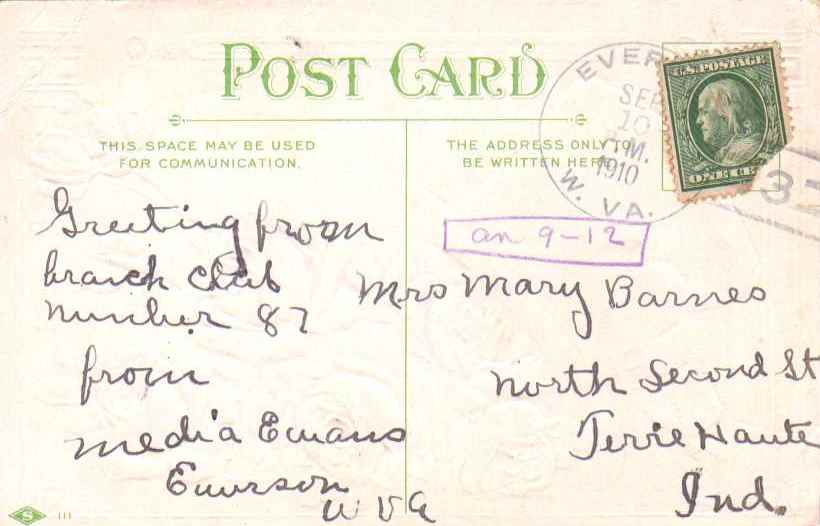 POST CARD
THIS SPACE MAY BE USED
FOR COMMUNICATION.
THE ADDRESS ONLY TO
BE WRITTEN HERE
EVER
SEP
10
M.
1910
W. VA.
U.S. POSTAGE
ONE
3
an 9-12
Greeting from
branch club
number 87
from
Media
Emerson
W VA
Mrs Mary Barnes
North Second St
Terre Haute
Ind.
S
111